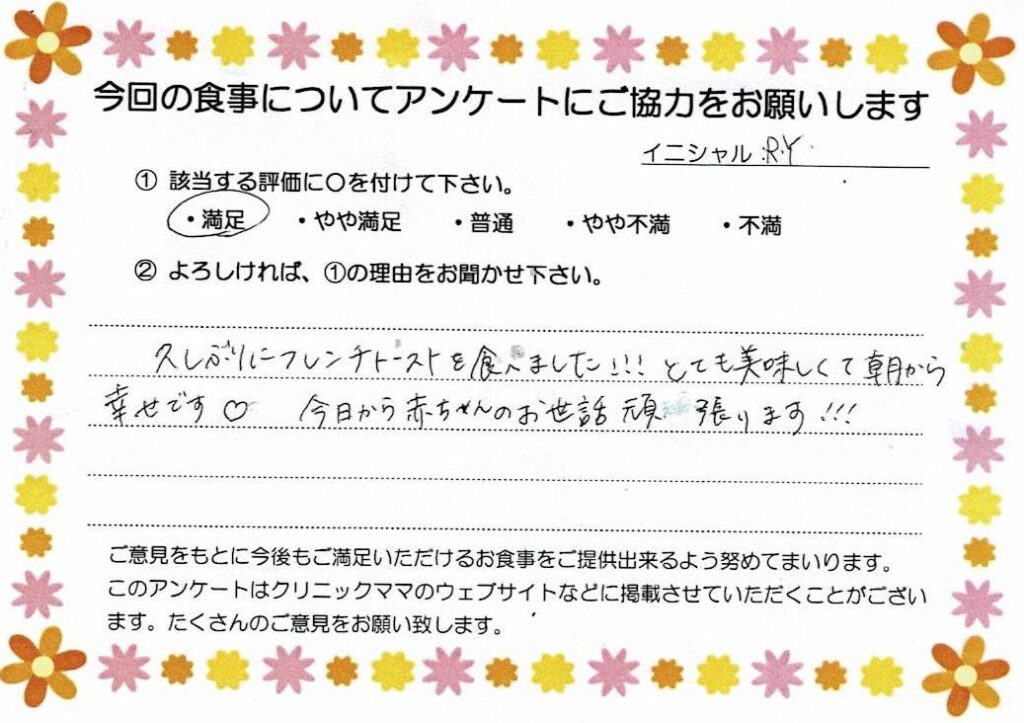 今回の食事についてアンケートにご協力をお願いします
イニシャル R.Y
① 該当する評価に○を付けて下さい。
・満足 ・やや満足 ・普通 ・やや不満 ・不満
② よろしければ、①の理由をお聞かせ下さい。
久しぶりにフレンチトーストを食べました!!! とても美味しくて朝から
幸せです♡ 今日から赤ちゃんのお世話頑張ります!!!
ご意見をもとに今後もご満足いただけるお食事をご提供出来るよう努めてまいります。
このアンケートはクリニックママのウェブサイトなどに掲載させていただくことがござい
ます。たくさんのご意見をお願い致します。